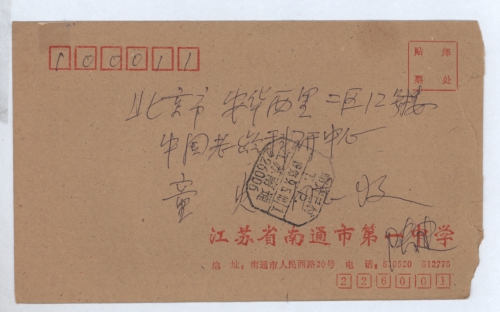 100011
贴 邮
票 处
北京市 安华西里 二区12号楼
中国老龄科研中心
童 收
江苏省南通市第一中学
地 址：南通市人民西路20号 电 话：510520 512776
226001